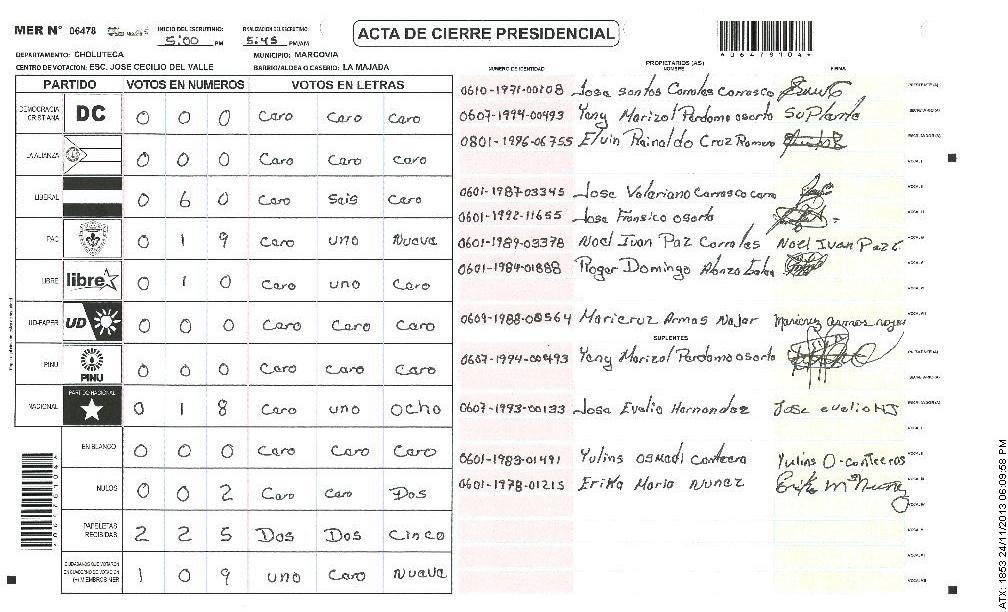 MER N° 06478
INICIO DEL ESCRUTINIO: 5:00 PM
FINALIZACION DEL ESCRUTINIO: 5:45 PM/AM
ACTA DE CIERRE PRESIDENCIAL
DEPARTAMENTO: CHOLUTECA
MUNICIPIO: MARCOVIA
CENTRO DE VOTACION: ESC. JOSE CECILIO DEL VALLE
BARRIO/ALDEA O CASERIO: LA MAJADA
PARTIDO VOTOS EN NUMEROS VOTOS EN LETRAS
DEMOCRACIA CRISTIANA DC 0 0 0 Caro Caro Caro
LA ALIANZA 0 0 0 Caro Caro Caro
LIBERAL 0 6 0 Caro Seis Caro
PAC 0 1 9 Caro uno Nueve
LIBRE libre 0 1 0 Caro uno Caro
UD-FAPER UD 0 0 0 Caro Caro Caro
PINU PINU 0 0 0 Caro Caro Caro
NACIONAL PARTIDO NACIONAL 0 1 8 Caro uno ocho
EN BLANCO 0 0 0 Caro Caro Caro
NULOS 0 0 2 Caro Caro Dos
PAPELETAS RECIBIDAS 2 2 5 Dos Dos Cinco
CIUDADANOS QUE VOTARON EN CUADERNO DE VOTACION (+) MIEMBROS MER 1 0 9 uno Caro Nueve
PROPIETARIOS (AS)
NUMERO DE IDENTIDAD NOMBRE FIRMA
0610-1971-00108 Jose santos Corrales Carrasco
0607-1994-00493 Yeny Marizol Perdomo osorto Suplente
0801-1996-06755 Elvin Rainaldo Cruz Romero
0601-1987-03345 Jose Valeriano Carrasco
0601-1992-11655 Jose Fransico osorto
0601-1989-03378 Noel Ivan Paz Corrales Noel Ivan Paz C
0601-1984-01888 Roger Domingo
0609-1988-00564 Maricruz Armas Najar
SUPLENTES
0607-1994-00493 Yeny Marizol Perdomo osorto
0607-1993-00133 Jose Evelio Hernandez Jose evelio
0601-1983-01491 Yulins Osmadi Yulins O-
0601-1978-01215 Erika Maria Nunez Erika Mª Nuñez
ATX: 1853 24/11/2013 06:09:58 PM